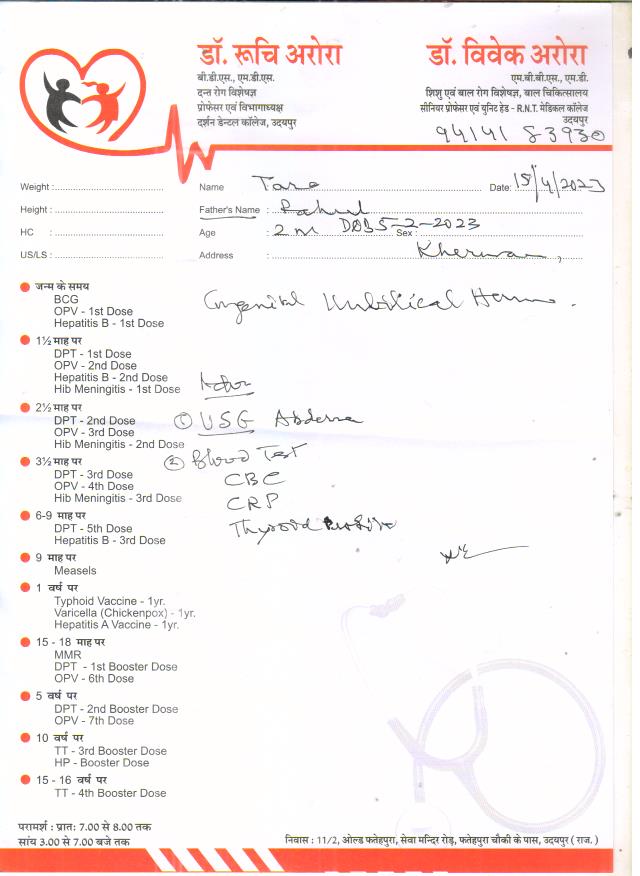 डॉ. रूचि अरोरा
बी.डी.एस., एम.डी.एस.
दन्त रोग विशेषज्ञ
प्रोफेसर एवं विभागाध्यक्ष
दर्शन डेन्टल कॉलेज, उदयपुर
डॉ. विवेक अरोरा
एम.बी.बी.एस., एम.डी.
शिशु एवं बाल रोग विशेषज्ञ, बाल चिकित्सालय
सीनियर प्रोफेसर एवं युनिट हेड - R.N.T. मेडिकल कॉलेज
उदयपुर
94141 83930
Weight :
Name Tara Date: 15/4/2023
Height : Father's Name : Rahul
HC : Age : 2 m DOB 5-2-2023 Sex :
US/LS : Address : Kherwara,
जन्म के समय
BCG
OPV - 1st Dose
Hepatitis B - 1st Dose
Congenital Umbilical Hernia.
1½ माह पर
DPT - 1st Dose
OPV - 2nd Dose
Hepatitis B - 2nd Dose
Hib Meningitis - 1st Dose
2½ माह पर
DPT - 2nd Dose
OPV - 3rd Dose
Hib Meningitis - 2nd Dose
① USG Abdomen
3½ माह पर
DPT - 3rd Dose
OPV - 4th Dose
Hib Meningitis - 3rd Dose
② Blood Test
CBC
CRP
Thyroid Profile
6-9 माह पर
DPT - 5th Dose
Hepatitis B - 3rd Dose
9 माह पर
Measels
1 वर्ष पर
Typhoid Vaccine - 1yr.
Varicella (Chickenpox) - 1yr.
Hepatitis A Vaccine - 1yr.
15 - 18 माह पर
MMR
DPT - 1st Booster Dose
OPV - 6th Dose
5 वर्ष पर
DPT - 2nd Booster Dose
OPV - 7th Dose
10 वर्ष पर
TT - 3rd Booster Dose
HP - Booster Dose
15 - 16 वर्ष पर
TT - 4th Booster Dose
परामर्श : प्रातः 7.00 से 8.00 तक
सांय 3.00 से 7.00 बजे तक
निवास : 11/2, ओल्ड फतेहपुरा, सेवा मन्दिर रोड़, फतेहपुरा चौकी के पास, उदयपुर ( राज. )